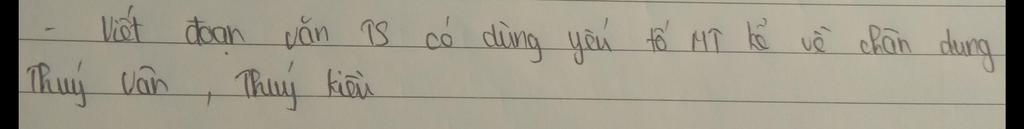 - Viết đoạn văn TS có dùng yếu tố MT kể về chân dung
Thuý Vân, Thuý Kiều